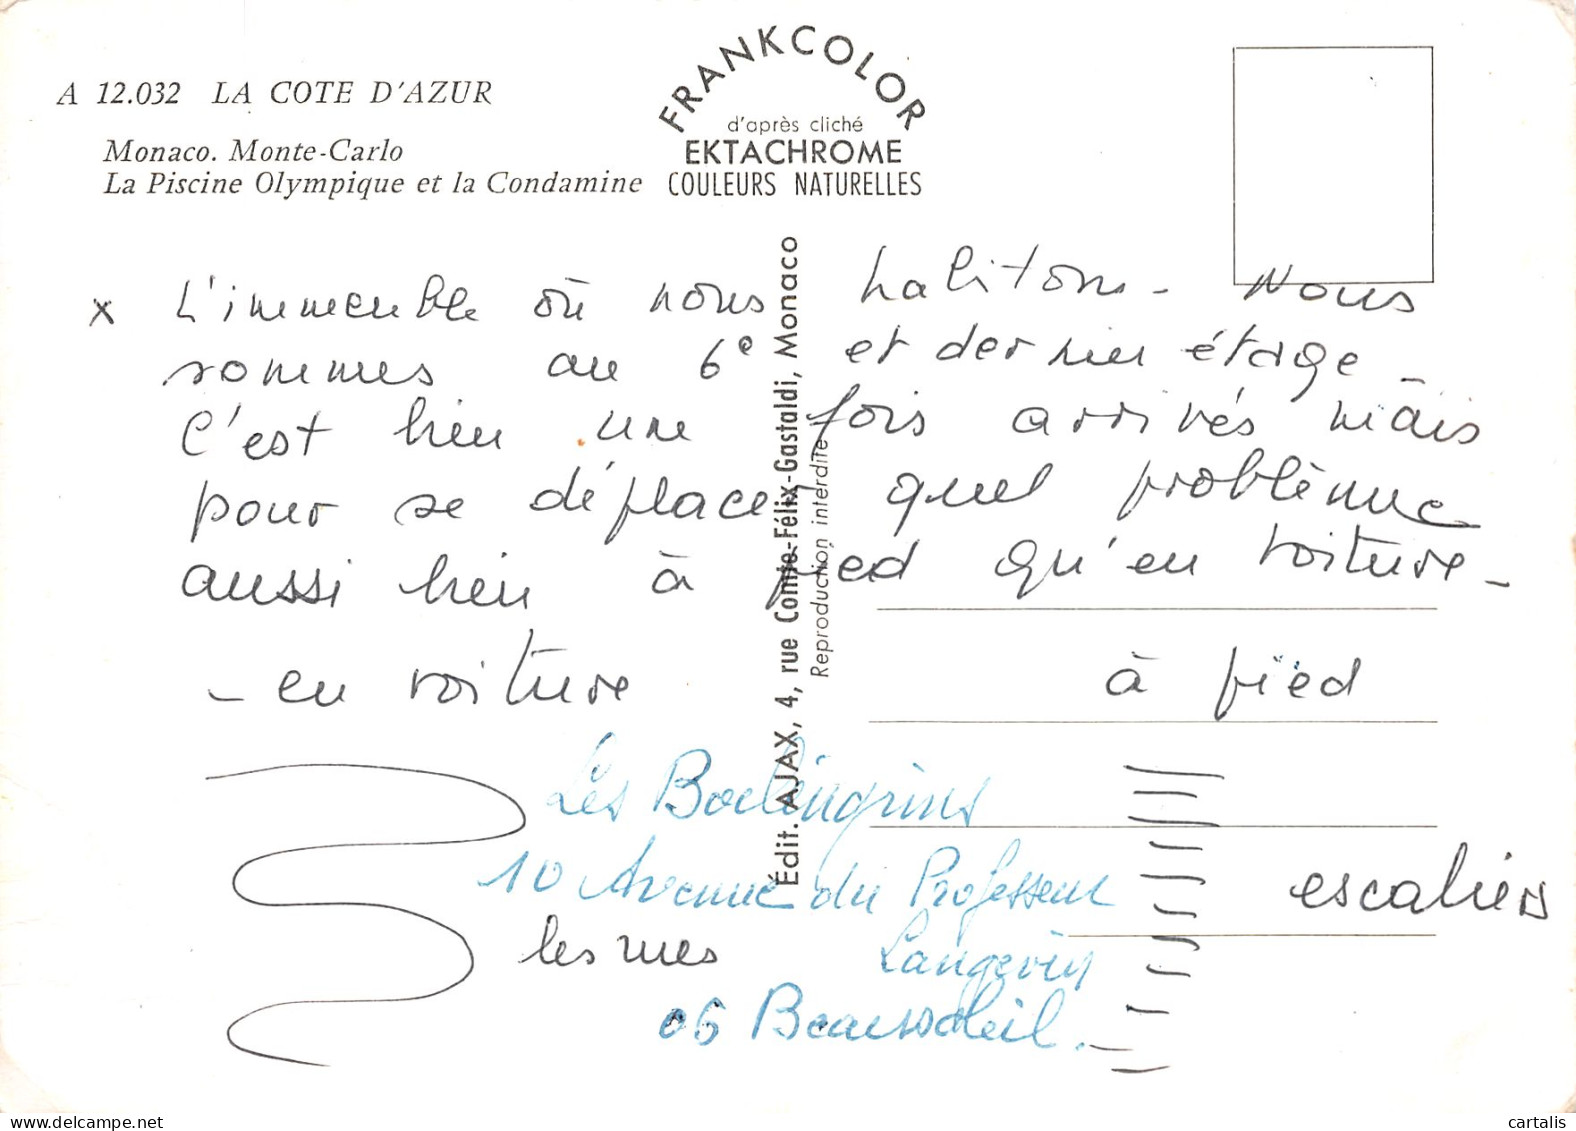 A 12.032 LA COTE D'AZUR
Monaco. Monte-Carlo
La Piscine Olympique et la Condamine
FRANKCOLOR
d'après cliché
EKTACHROME
COULEURS NATURELLES
x L'immeuble où nous habitons - Nous
sommes au 6e et dernier étage -
C'est bien une fois arrivés mais
pour se déplacer quel problème
aussi bien à pied qu'en voiture -
- en voiture à pied
Les Boulingrins
10 Avenue du Professeur
Langevin
06 Beausoleil.
les rues
escaliers
Édit. AJAX, 4, rue Comte-Félix-Gastaldi, Monaco
Reproduction interdite
www.delcampe.net
cartalis